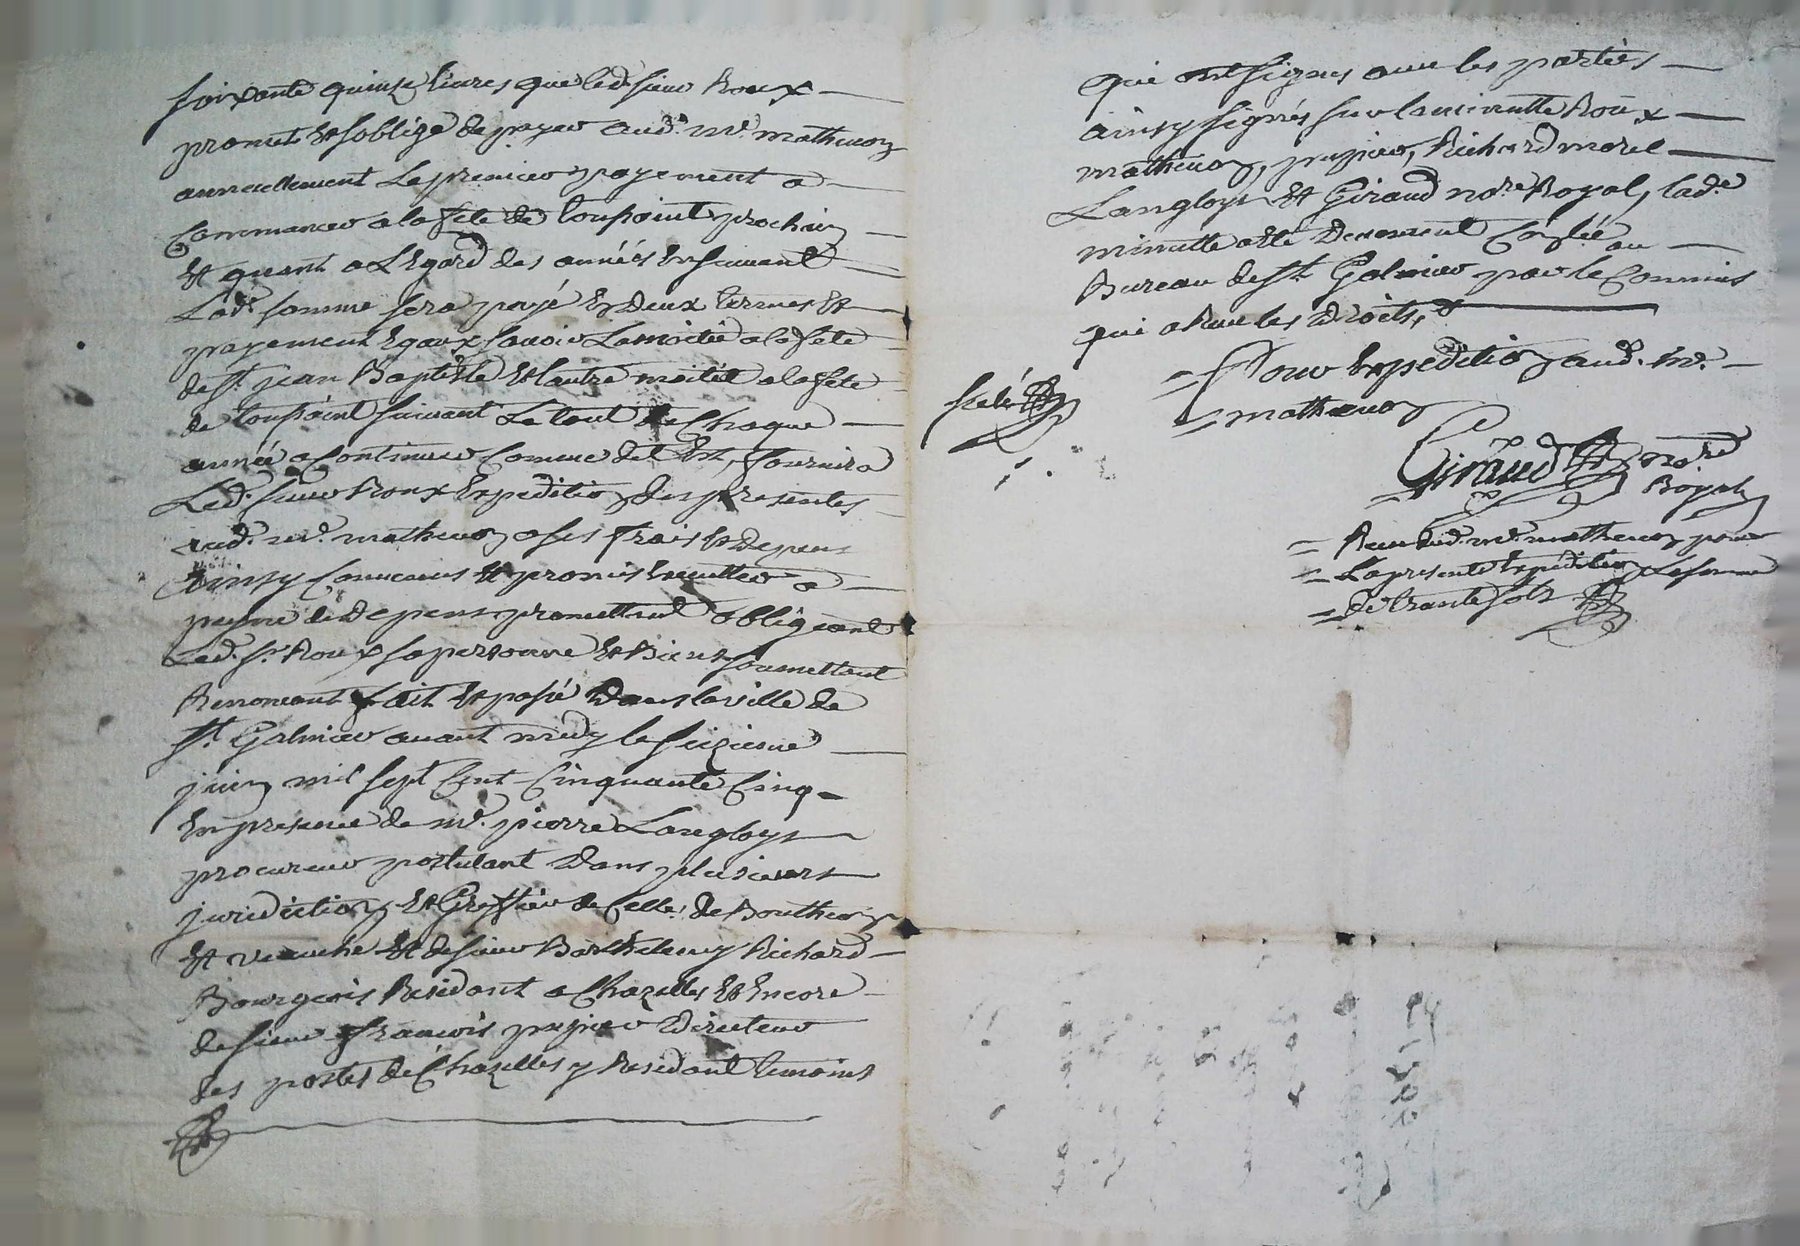 soixante quinze livres que led. sieur Roux
promet et soblige de payer aud. mr. matheuon
annuellement Le premier payement a
Commancer a la fete de toussaint prochain
Et quant a L'Egard des années En suivant
Lad. somme sera payé En Deux termes et
payement Egaux savoir La moitié a la fete
de st. jean Baptiste et lautre moitié a la fete
de toussaint suivant Le tout de Chaque
année a Continuer Comme dit Est, fournira
Led. sieur Roux Expedition des presentes
aud. mr. matheuon a ses frais et depens
Ainsy Convenus et promis Executter a
peyne de Depens promettant obligeant
Led. sr. Roux sa personne Et Biens soumettant
Renonceant fait Et passé Dans la ville de
st. Galmier avant midy le seizieme
juin mil sept Cent Cinquante Cinq
En presence de me. pierre Langloys
procureur postulant Dans plusieurs
juridiction Et Greffier de Celle de Boutheon
Et veauche Et de sieur Barthelemy Richard
Bourgeois Residant a Chazelles Et Encore
de sieur francois pupier Directeur
des postes de Chazelles y Residant temoins
que ont signes avec les parties
ainsy signés sur la minutte Roux
matheuon, pupier, Richard morel
Langloys Et Giraud nore. Royal, lade.
minutte a Eté Deuement Conslée au
Bureau de st. Galmier par le Commis
qui a Receu les Droits,
Pour Expedition aud. mr.
matheuon
scelé
Giraud nore.
Royal
Receu dud. mr. matheuon pour
La presente Expedition La somme
de trante sols